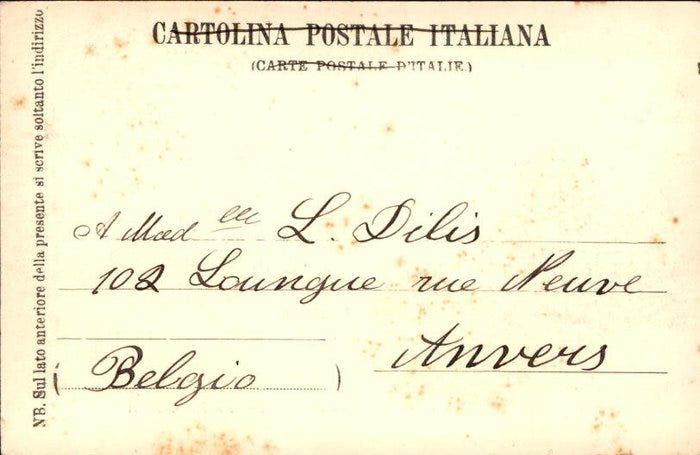 CARTOLINA POSTALE ITALIANA
(CARTE POSTALE D'ITALIE)
NB. Sul lato anteriore della presente si scrive soltanto l'indirizzo
A Mad elle L. Dilis
102 Loungue rue Neuve
Anvers
(Belgio)